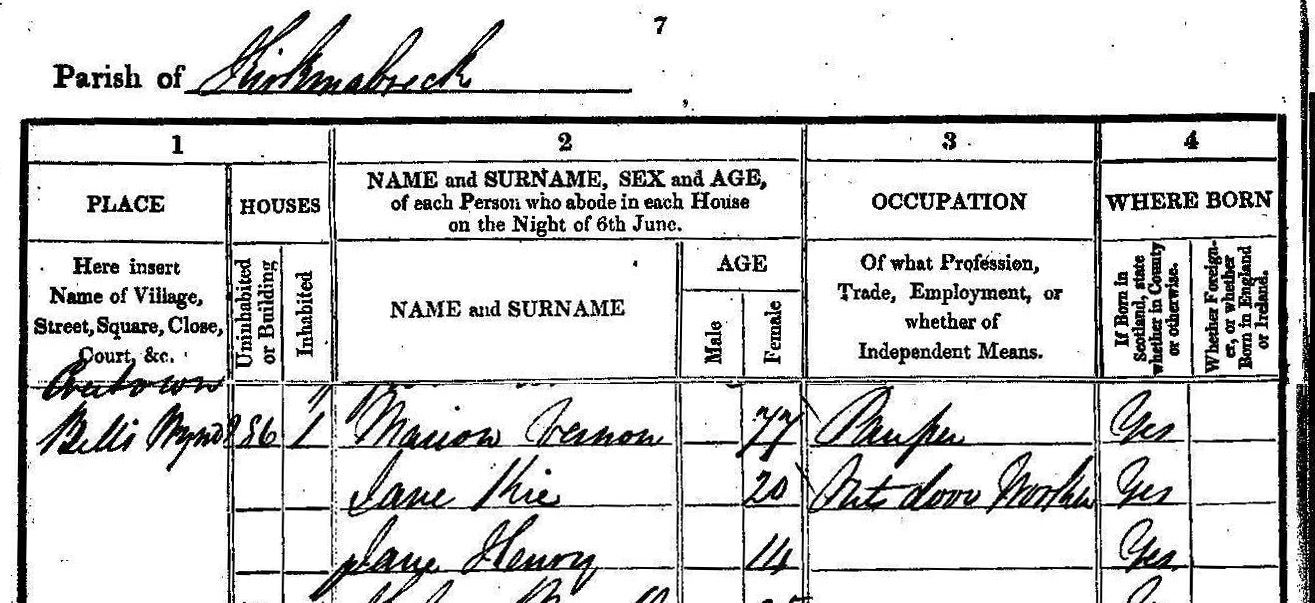 7
Parish of Kirkmabreck
1 2 3 4
PLACE HOUSES NAME and SURNAME, SEX and AGE, of each Person who abode in each House on the Night of 6th June. OCCUPATION WHERE BORN
Here insert Name of Village, Street, Square, Close, Court, &c.
Uninhabited or Building
Inhabited
NAME and SURNAME
AGE
Male
Female
Of what Profession, Trade, Employment, or whether of Independent Means.
If Born in Scotland, state whether in County or otherwise.
Whether Foreigner, or whether Born in England or Ireland.
Bells Wynd 1 Marion Vernon 77 Pauper Yes
Jane Kie 20 Out door Worker Yes
Jane Henry 14 Yes